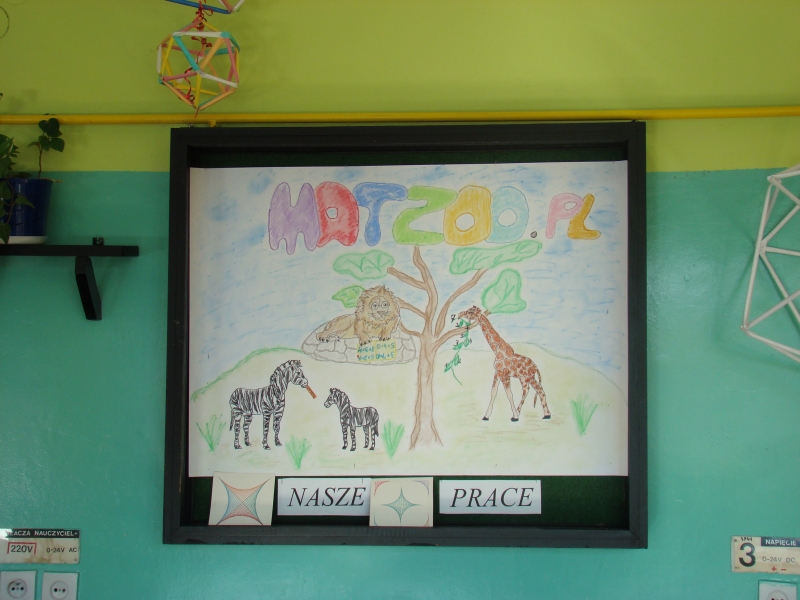 MATZOO.PL
NASZE PRACE
ŁĄCZA NAUCZYCIEL
220V 0-24V AC
3 NAPIĘCIE
0-24V DC
+ -